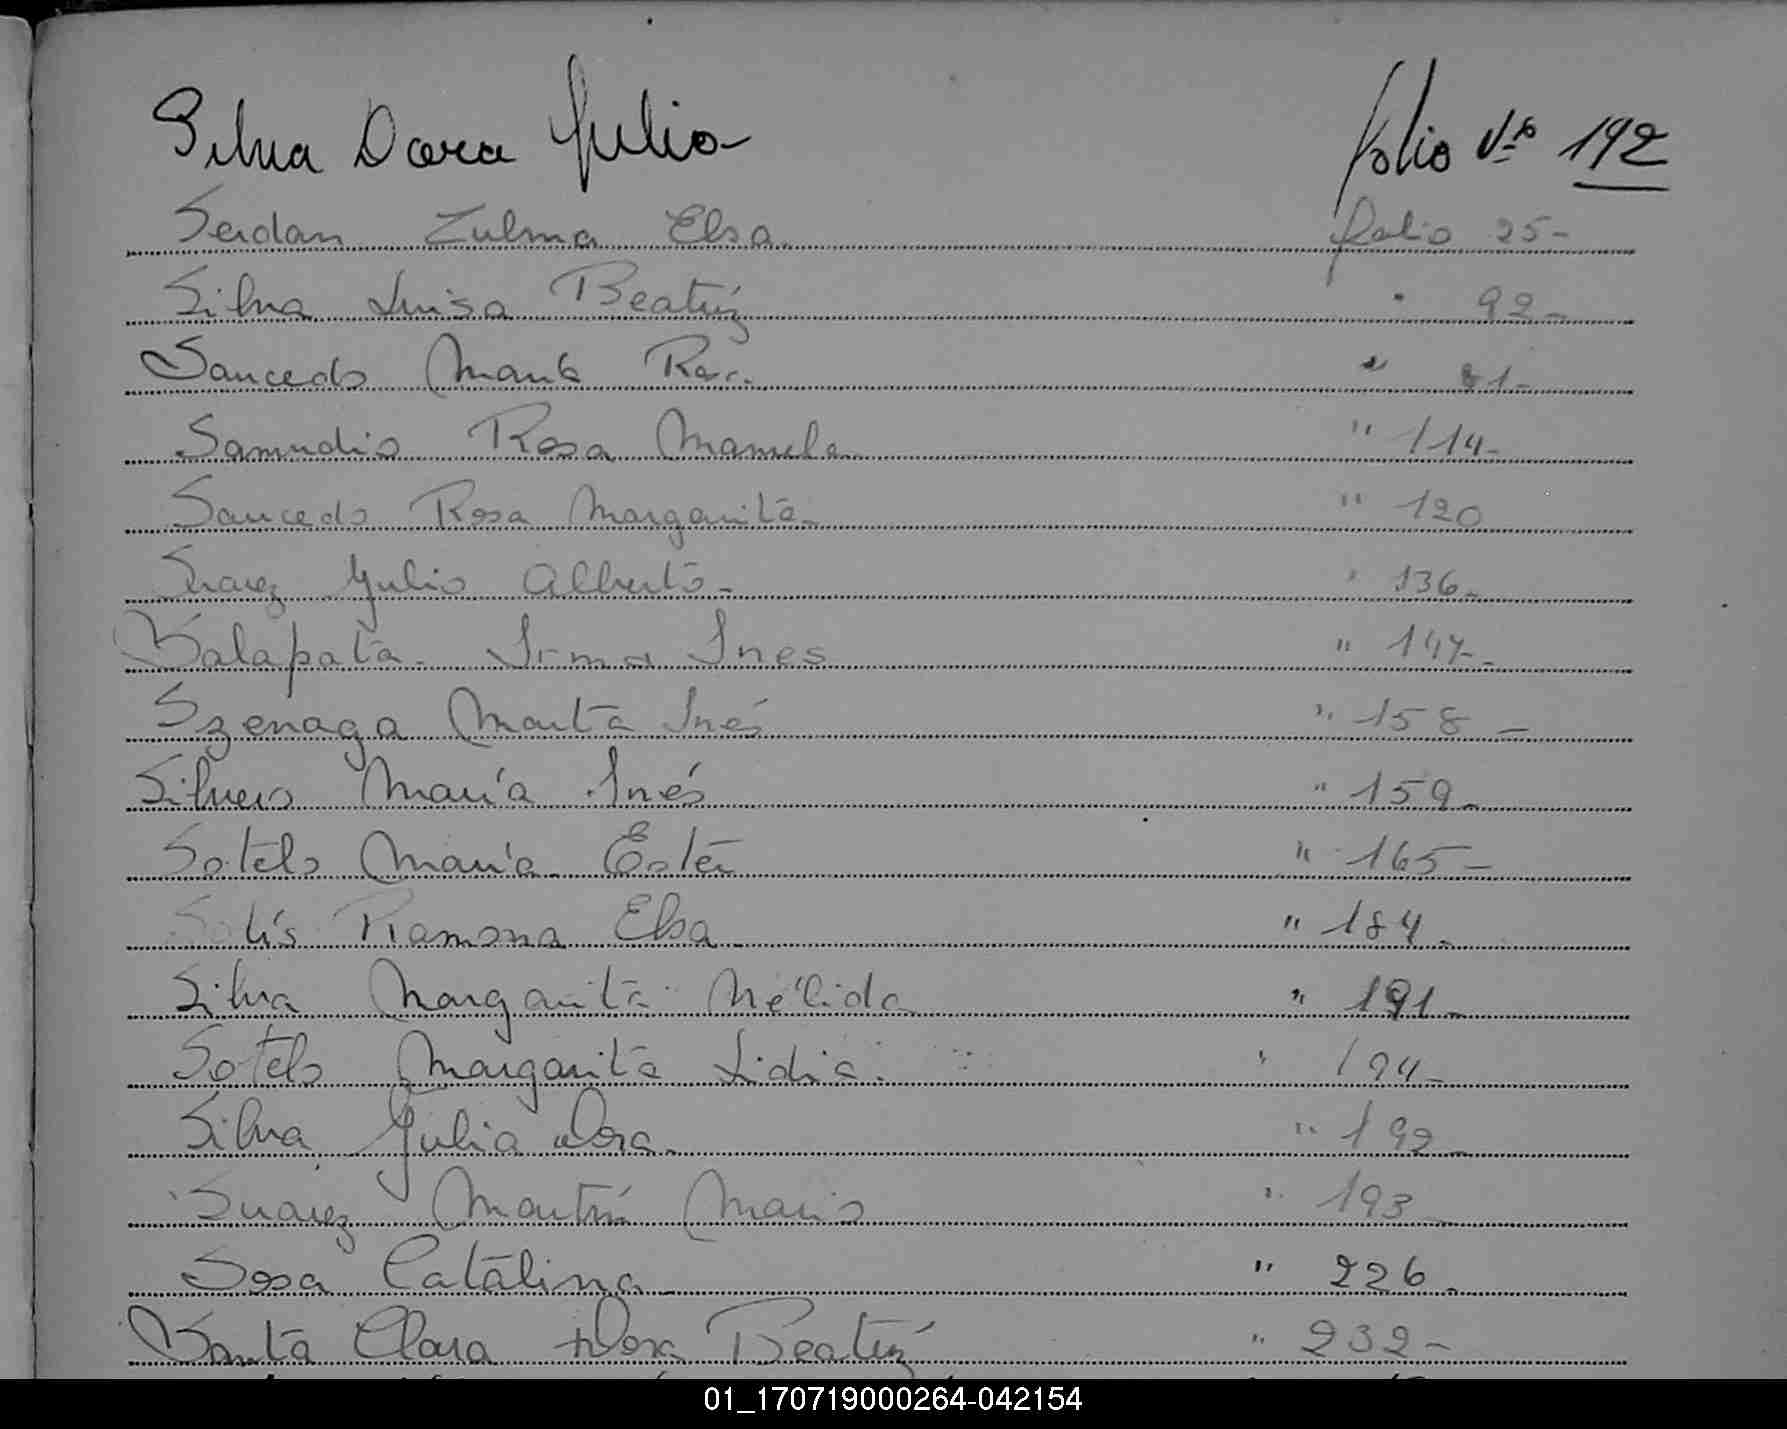 Silva Dora Julia folio Nº 192
Serdan Zulma Elsa folio 25-
Silva Luisa Beatriz " 92-
Saucedo María " 81-
Samudio Rosa Manuela " 114-
Saucedo Rosa Margarita- " 120
Suarez Julio Alberto- " 136-
Salapata Irma Ines " 147-
Szenaga Marta Inés " 158-
Silvero María Inés " 159-
Sotelo María Ester " 165-
Solís Ramona Elsa " 184-
Silva Margarita Nélida " 191-
Sotelo Margarita Lidia. " 194-
Silva Julia Dora- " 192-
Suarez Martín Mario " 193-
Sosa Catalina " 226-
Santa Clara Dora Beatríz " 232-
01_170719000264-042154